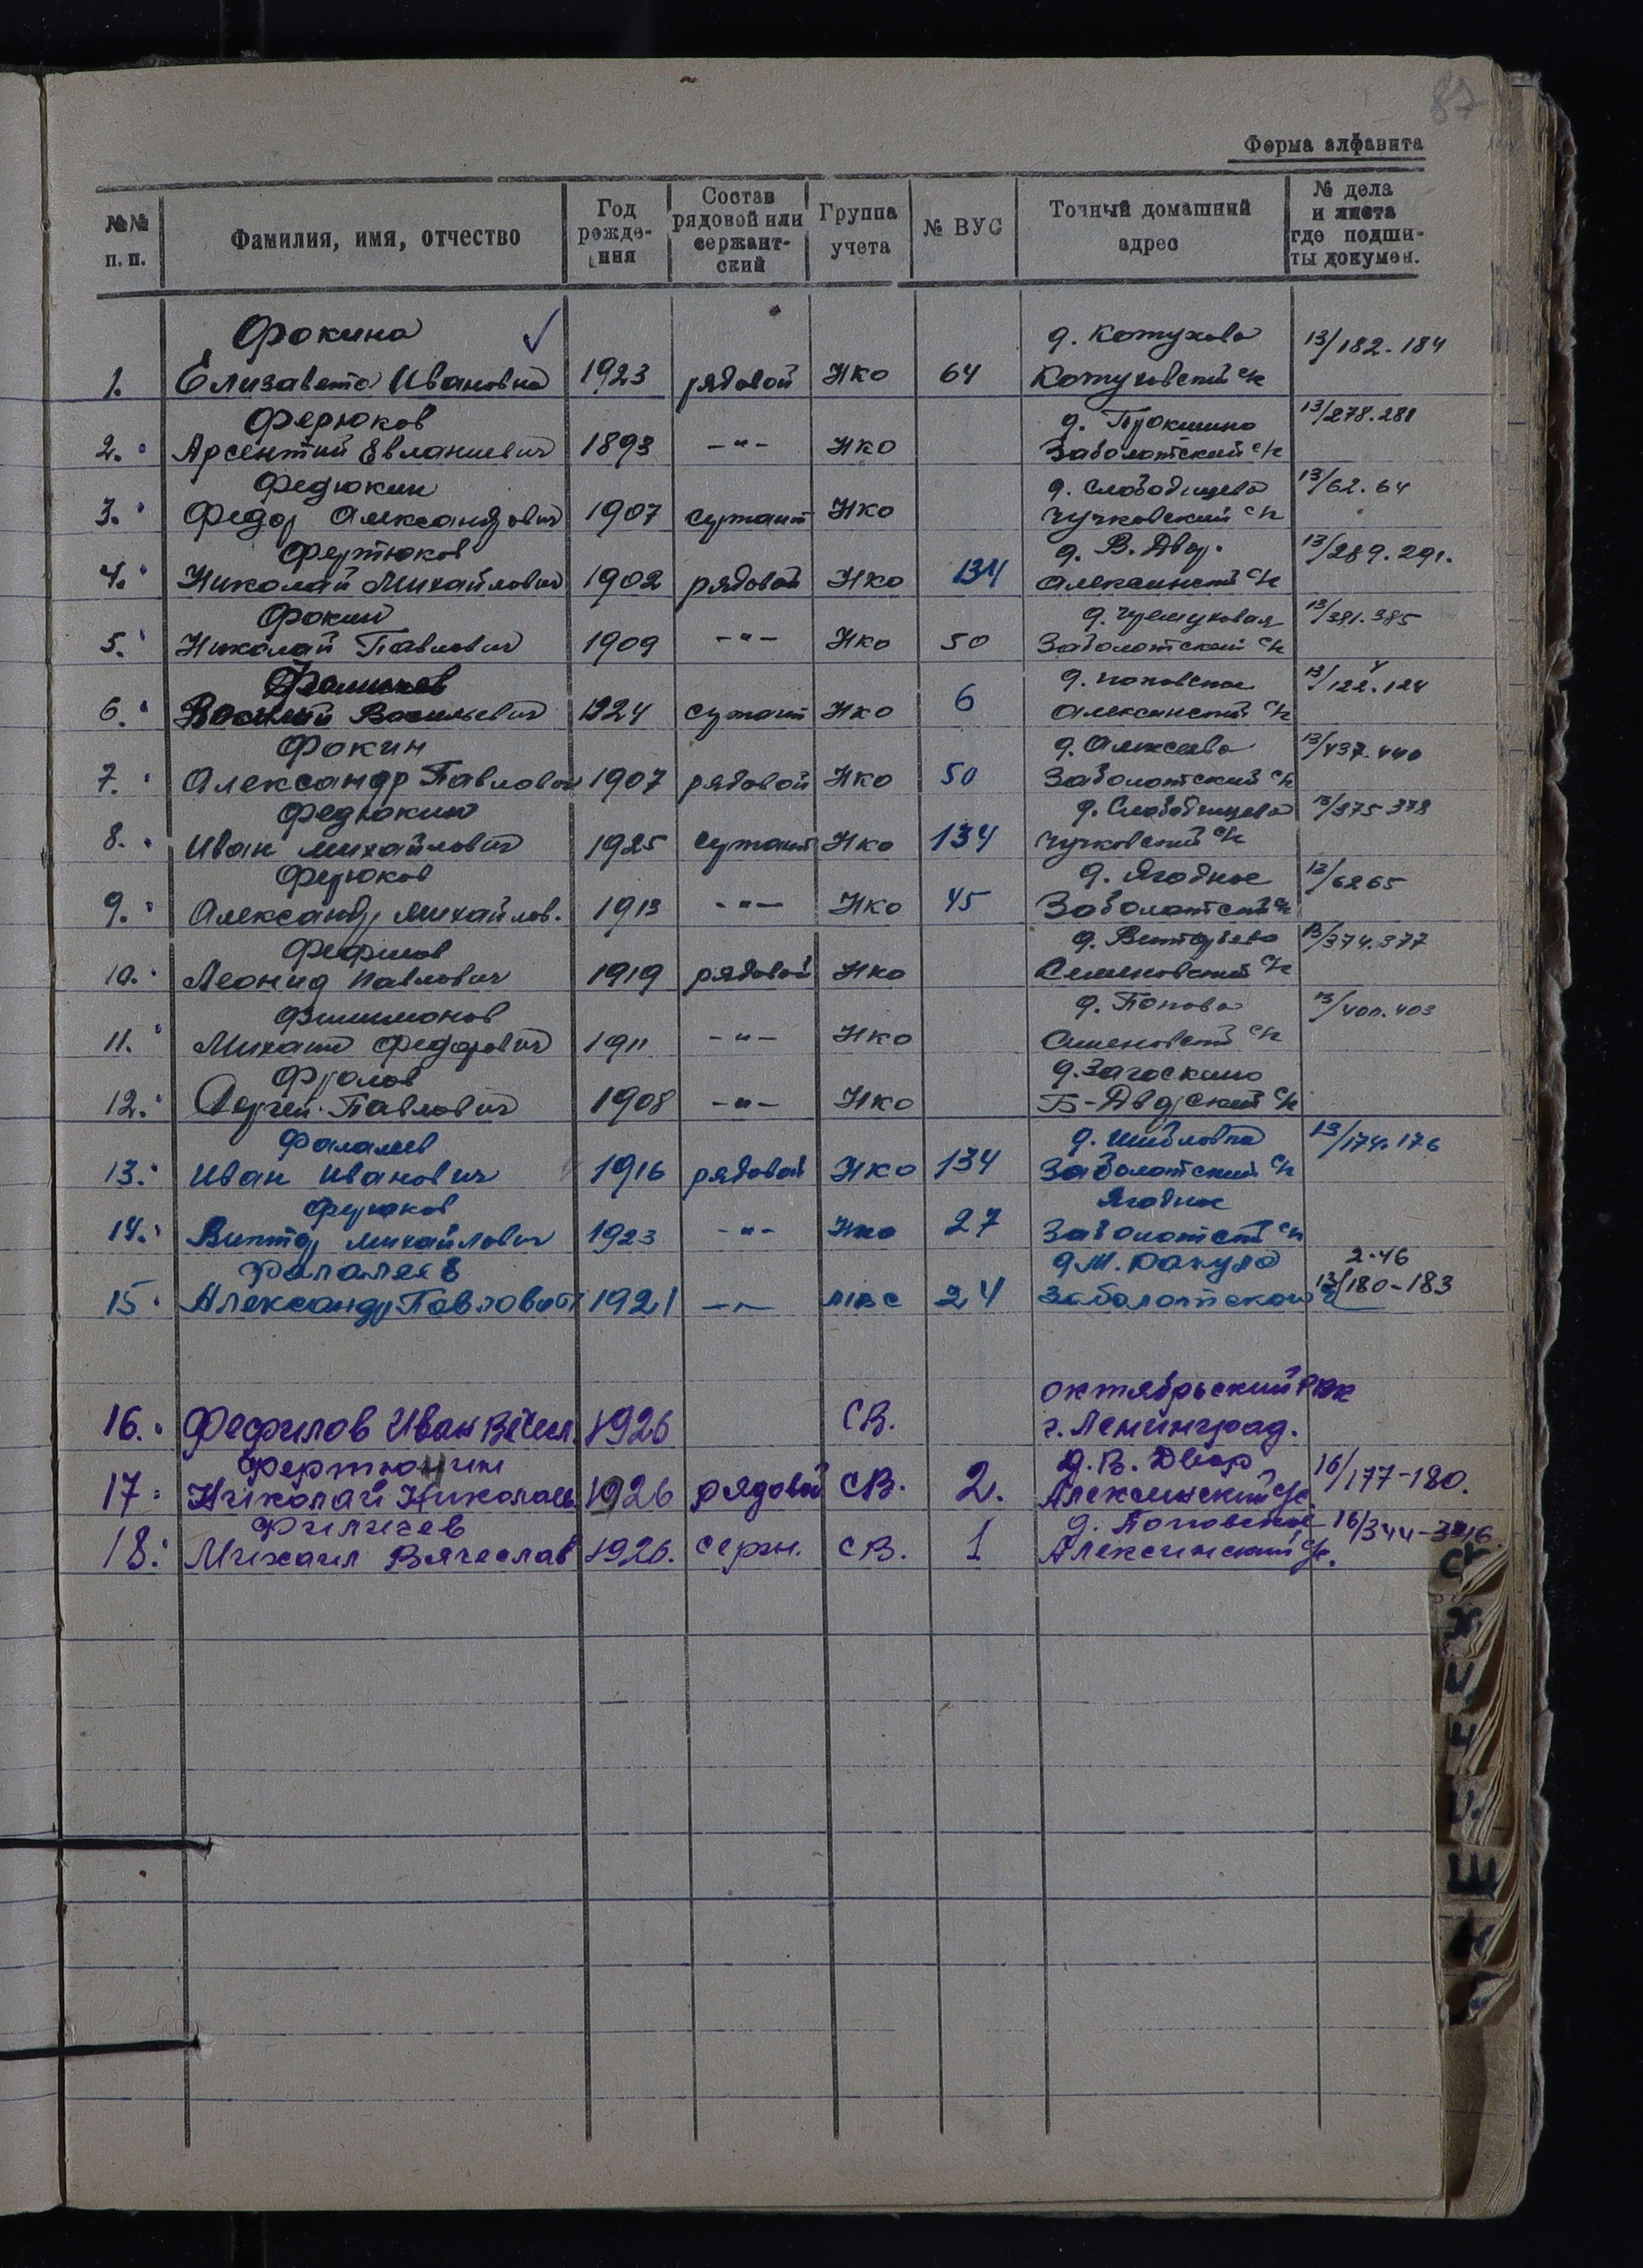 87
Форма алфавита
№№ п. п.
Фамилия, имя, отчество
Год рожде- ния
Состав рядовой или сержант- ский
Группа учета
№ ВУС
Точный домашний адрес
№ дела и листа где подши- ты докумен.
Фокина д. Кожухово 13/182-184
1. Елизавета Ивановна 1923 рядовой НКО 64 Кожуховский с/с
Ферюков д. Прокшино 13/278.281
2. Арсентий Евлампиевич 1893 -"- НКО Заболотский с/с
Федюкин д. Слободищево 13/62.64
3. Федор Александрович 1907 сержант НКО Чучковский с/с
Фертюков д. В. Двор. 13/289.291.
4. Николай Михайлович 1902 рядовой НКО 134 Алексинский с/с
Фокин 13/381.385
5. Николай Павлович 1909 -"- НКО 50 Заболотский с/с
д. Поповское 13/122.124
6. Василий Васильевич 1924 сержант НКО 6 Алексинский с/с
Фокин д. Алексеево 13/437.440
7. Александр Павлович 1907 рядовой НКО 50 Заболотский с/с
Федюкин д. Слободищево 13/375 378
8. Иван Михайлович 1925 сержант НКО 134 Чучковский с/с
Ферюков д. Ягодное 13/62 65
9. Александр Михайлов. 1913 -"- НКО 45 Заболотский с/с
Фефилов 13/374.377
10. Леонид Павлович 1919 рядовой НКО Семеновский с/с
Филимонов д. Попово 13/400.403
11. Михаил Федорович 1911 -"- НКО Семеновский с/с
Фролов д. Загоскино
12. Сергей Павлович 1908 -"- НКО Б-Дворский с/с
Фалалеев д. Шиловка 13/174.176
13. Иван Иванович 1916 рядовой НКО 134 Заболотский с/с
Ферюков Ягодное
14. Виктор Михайлович 1923 -"- НКО 27 Заболотский с/с
Фалалеев д М. Ракула 2-46
15. Александр Павлович 1921 -"- МВС 24 Заболотского 13/180-183
Октябрьский РВК
16. Фефилов Иван Вячесл. 1926 СВ. г. Ленинград.
Фертюгин д. В. Двор 16/177-180.
17. Николай Николаев 1926 рядовой СВ. 2. Алексинский с/с.
Филичев д. Поповское 16/344-346.
18. Михаил Вячеслав 1926. серж. СВ. 1 Алексинский с/с.
Х
Ц
Ч
Ш